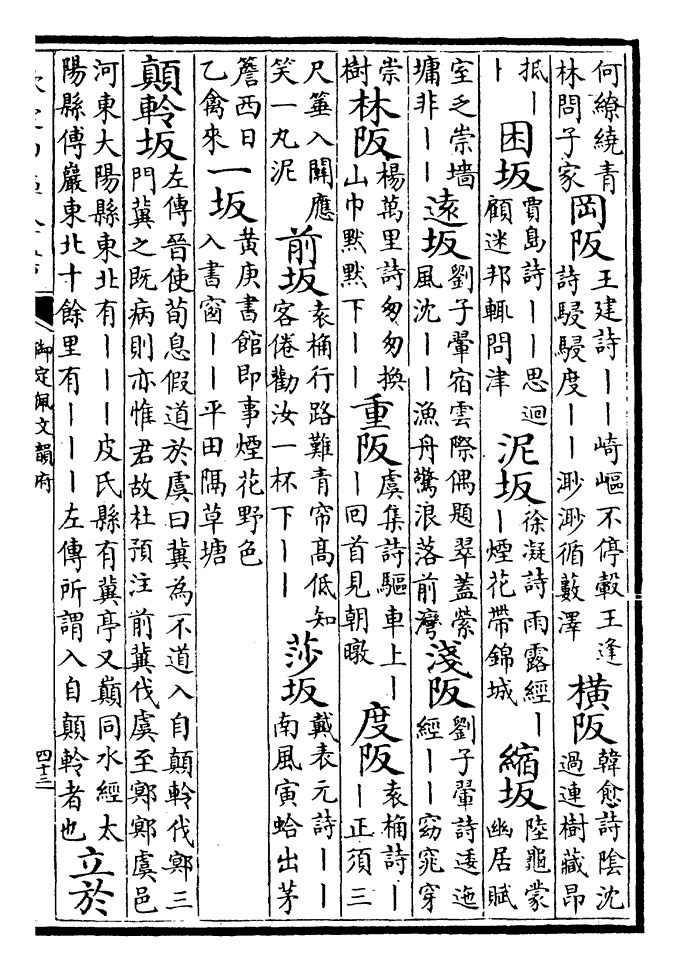 何繚繞青林問子家岡阪王建詩丨丨崎嶇不停轂王逢詩駸駸度丨丨渺渺循藪澤橫阪韓愈詩陰沈過連樹藏昂
抵丨丨困坂賈島詩丨丨思迴顧迷邦輒問津泥坂徐凝詩雨露經丨丨煙花帶錦城縮坂陸龜蒙幽居賦
室乏崇墙墉非丨丨遠坂劉子翬宿雲際偶題翠蓋縈風沈丨丨漁舟驚浪落前灣淺阪劉子翬詩逶迤經丨丨窈窕穿
崇樹林阪楊萬里詩匆匆換山巾默默下丨丨重阪虞集詩驅車上丨丨回首見朝暾度阪袁桷詩丨丨正須三
尺箠入關應笑一丸泥前坂袁桷行路難青帘高低知客倦勸汝一杯下丨丨莎坂戴表元詩丨丨南風寅蛤出茅
簷西日乙禽來一坂黃庚書館即事煙花野色入書窗丨丨平田隔草塘
顛軨坂左傳晉使荀息假道於虞曰冀為不道入自顛軨伐鄍三門冀之既病則亦惟君故杜預注前冀伐虞至鄍鄍虞邑
河東大陽縣東北有丨丨丨皮氏縣有冀亭又巔同水經太陽縣傅巖東北十餘里有丨丨丨左傳所謂入自顛軨者也立於
御定佩文韻府
四十三